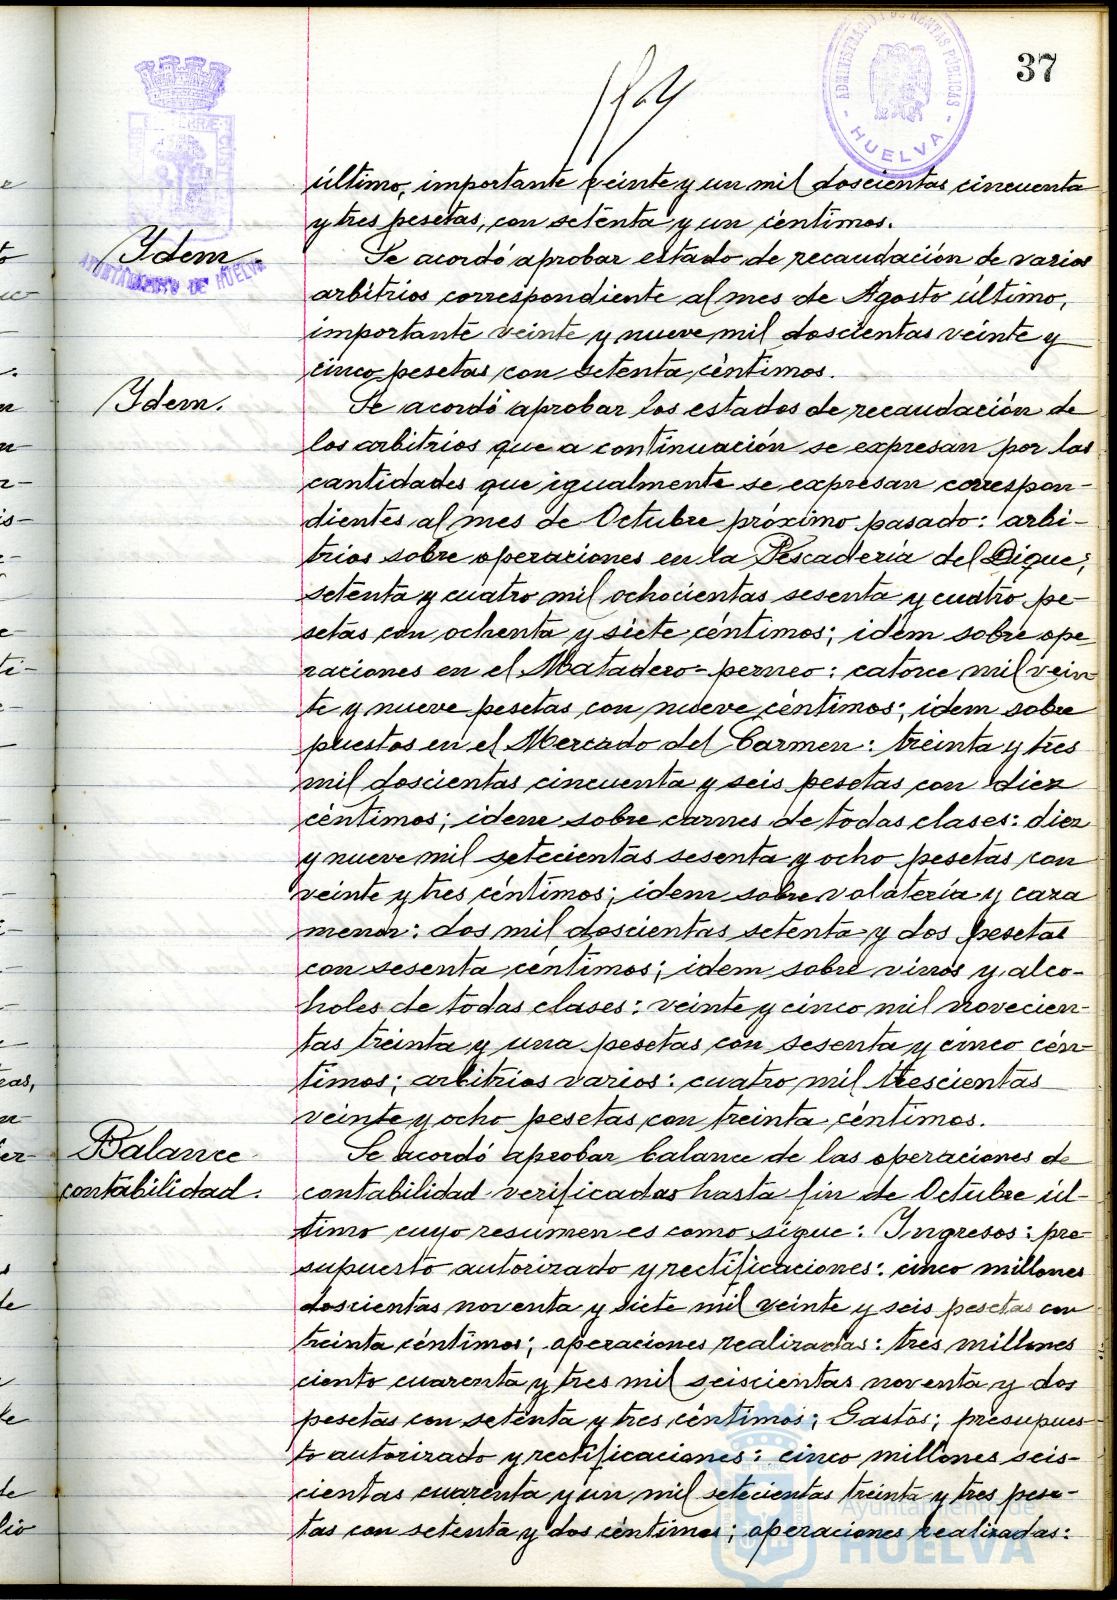 37
ADMINISTRACION DE RENTAS PÚBLICAS
HUELVA
AYUNTAMIENTO DE HUELVA
último, importante veinte y un mil doscientas cincuenta
y tres pesetas, con setenta y un céntimos.
Ydem.
Se acordó aprobar estado de recaudación de varios
arbitrios correspondiente al mes de Agosto último,
importante veinte y nueve mil doscientas veinte y
cinco pesetas con setenta céntimos.
Ydem.
Se acordó aprobar los estados de recaudación de
los arbitrios que a continuación se expresan por las
cantidades que igualmente se expresan correspon-
dientes al mes de Octubre próximo pasado: arbi-
trios sobre operaciones en la Pescadería del Dique;
setenta y cuatro mil ochocientas sesenta y cuatro pe-
setas con ochenta y siete céntimos; idem sobre ope-
raciones en el Matadero-perneo: catorce mil vein-
te y nueve pesetas con nueve céntimos; idem sobre
puestos en el Mercado del Carmen: treinta y tres
mil doscientas cincuenta y seis pesetas con diez
céntimos; idem sobre carnes de todas clases: diez
y nueve mil setecientas sesenta y ocho pesetas con
veinte y tres céntimos; idem sobre volatería y caza
menor: dos mil doscientas setenta y dos pesetas
con sesenta céntimos; idem sobre vinos y alco-
holes de todas clases: veinte y cinco mil novecien-
tas treinta y una pesetas con sesenta y cinco cén-
timos; arbitrios varios: cuatro mil trescientas
veinte y ocho pesetas con treinta céntimos.
Balance
contabilidad.
Se acordó aprobar balance de las operaciones de
contabilidad verificadas hasta fin de Octubre úl-
timo cuyo resúmen es como sigue: Ingresos: pre-
supuesto autorizado y rectificaciones: cinco millones
doscientas noventa y siete mil veinte y seis pesetas con
treinta céntimos; operaciones realizadas: tres millones
ciento cuarenta y tres mil seiscientas noventa y dos
pesetas con setenta y tres céntimos; Gastos; presupues-
to autorizado y rectificaciones: cinco millones seis-
cientas cuarenta y un mil setecientas treinta y tres pese-
tas con setenta y dos céntimos; operaciones realizadas:
Ayuntamiento de
HUELVA